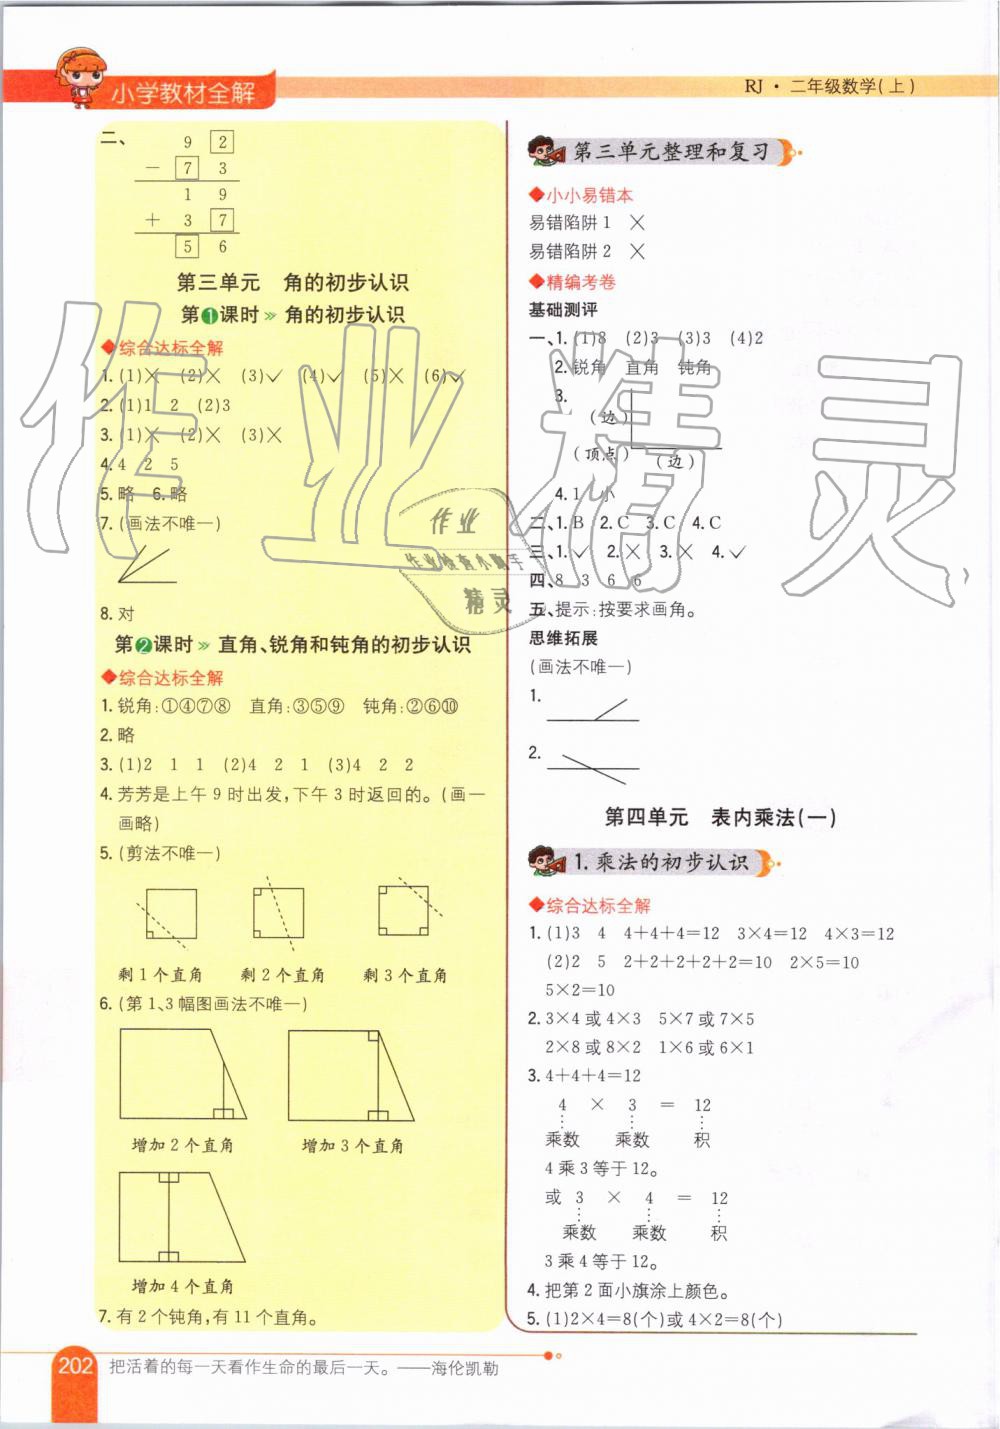 小学教材全解
RJ·二年级数学(上)
二、
9 2
－ 7 3
1 9
＋ 3 7
5 6
第三单元 角的初步认识
第1课时» 角的初步认识
◆综合达标全解
1.(1)✕ (2)✕ (3)✓ (4)✓ (5)✕ (6)✓
2.(1)1 2 (2)3
3.(1)✕ (2)✕ (3)✕
4.4 2 5
5.略 6.略
7.(画法不唯一)
8.对
第2课时» 直角、锐角和钝角的初步认识
◆综合达标全解
1.锐角:①④⑦⑧ 直角:③⑤⑨ 钝角:②⑥⑩
2.略
3.(1)2 1 1 (2)4 2 1 (3)4 2 2
4.芳芳是上午9时出发,下午3时返回的。(画一
画略)
5.(剪法不唯一)
剩1个直角 剩2个直角 剩3个直角
6.(第1、3幅图画法不唯一)
增加2个直角 增加3个直角
增加4个直角
7.有2个钝角,有11个直角。
第三单元整理和复习
◆小小易错本
易错陷阱1 ✕
易错陷阱2 ✕
◆精编考卷
基础测评
一、1.(1)8 (2)3 (3)3 (4)2
2.锐角 直角 钝角
3.
(边)
(顶点) (边)
4.1 小
二、1.B 2.C 3.C 4.C
三、1.✓ 2.✕ 3.✕ 4.✓
四、8 3 6 6
五、提示:按要求画角。
思维拓展
(画法不唯一)
1.
2.
第四单元 表内乘法(一)
1.乘法的初步认识
◆综合达标全解
1.(1)3 4 4+4+4=12 3×4=12 4×3=12
(2)2 5 2+2+2+2+2=10 2×5=10
5×2=10
2.3×4或4×3 5×7或7×5
2×8或8×2 1×6或6×1
3.4+4+4=12
4 × 3 = 12
乘数 乘数 积
4乘3等于12。
或 3 × 4 = 12
乘数 乘数 积
3乘4等于12。
4.把第2面小旗涂上颜色。
5.(1)2×4=8(个)或4×2=8(个)
202 把活着的每一天看作生命的最后一天。——海伦凯勒
作业精灵
作业
作业检查小助手
精灵